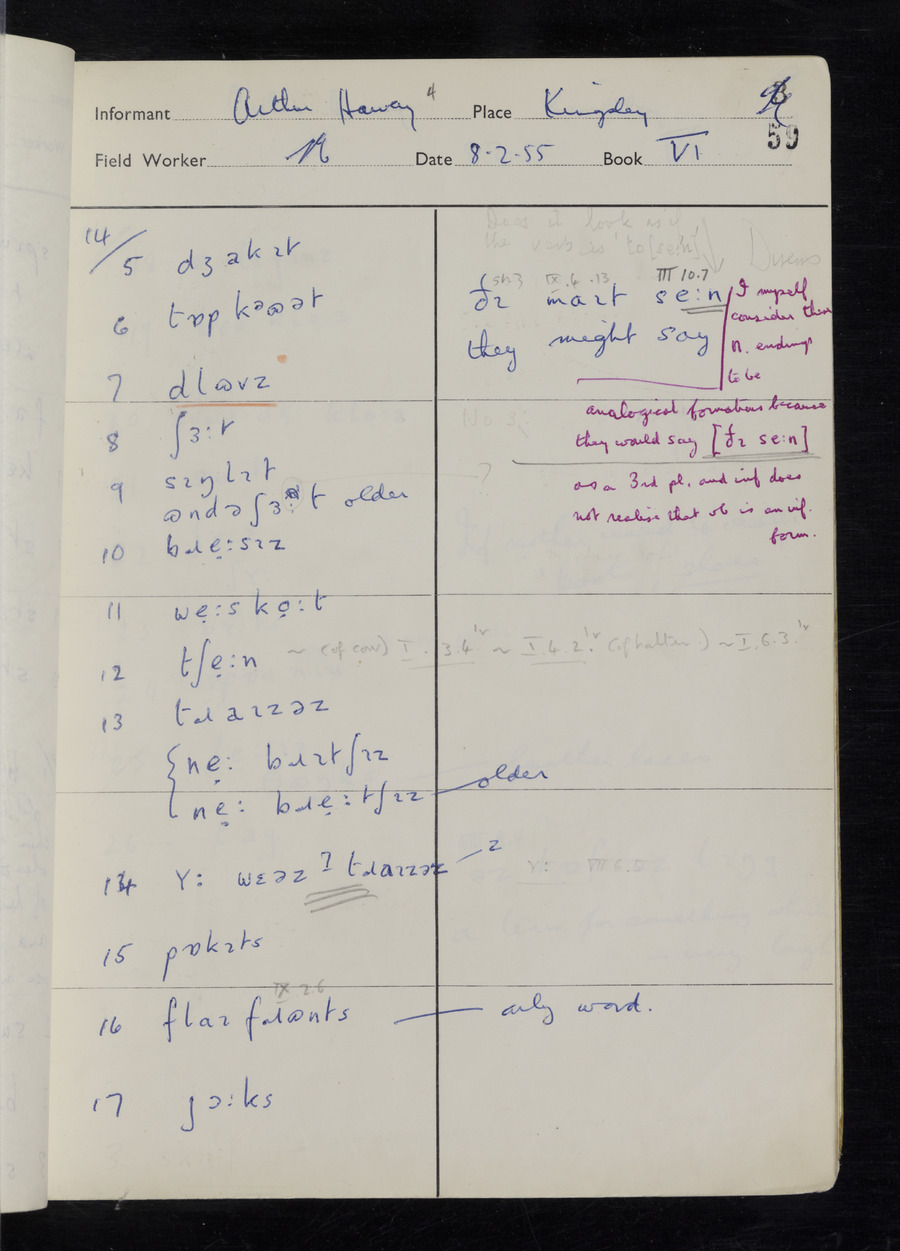 Informant Arthur Place Kingsey
59
Field Worker Date 8-2-55 Book VI
14/5 dʒakɪt
6 tɒp kəʊət
7 dlʊvz
8 ʃɜːt
9 sɪŋlɪt
ʊndəʃɜːt older
10 bɹẹːsɪz
11 wẹːskọːt
12 tʃẹːn ~ (of cow) I. 3.4 ~ I.4.2. (of halter) ~ I.6.3.
13 tɹaɪzəz
{nẹː bɹɪtʃɪz
nẹː bɹẹːtʃɪz older
14 Y: wɛəz ? tɹaɪzəz
15 pɒkɪts
IX 2.6
16 flaɪ fɹʊnts only word.
17 jɔːks
Does it look as if
the verb is 'to [seːn]' Discuss
IX.6.13 III 10.7
ðɪ maɪt seːn
they might say
I myself
consider these
n. endings
to be
analogical formations because
they would say [ðɪ seːn]
as a 3rd pl. and inf does
not realise that vb is an inf.
form.